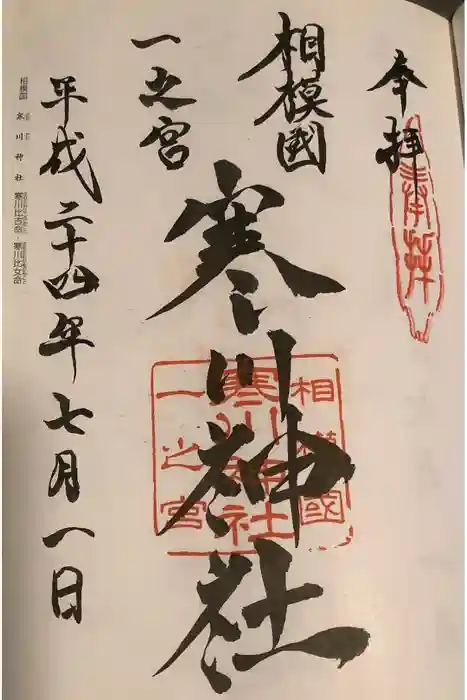 奉拝
奉拝
相模國
一之宮
寒川神社
相模國
寒川神社
一之宮
平成二十四年七月一日
相模国 寒川神社 寒川比古命・寒川比女命